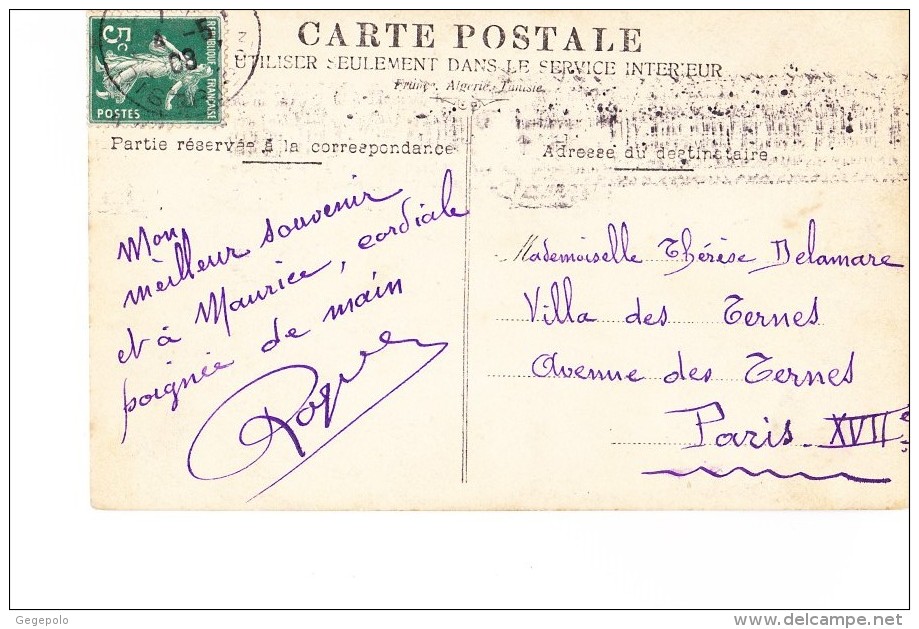 5c
RÉPUBLIQUE FRANÇAISE
POSTES
5
08
CARTE POSTALE
UTILISER SEULEMENT DANS LE SERVICE INTERIEUR
France, Algerie, Tunisie
Partie réservée à la correspondance
Adresse du destinataire
Mon
meilleur souvenir
et à Maurice, cordiale
poignée de main
Mademoiselle Thérèse Delamare
Villa des Ternes
Avenue des Ternes
Paris. XVIIe
Gegepolo
delcampe.net